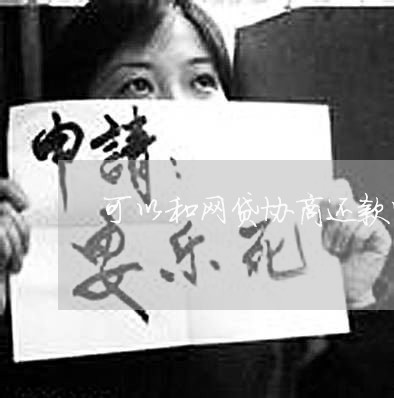 申請：
可以和网贷协商还款
安乐死